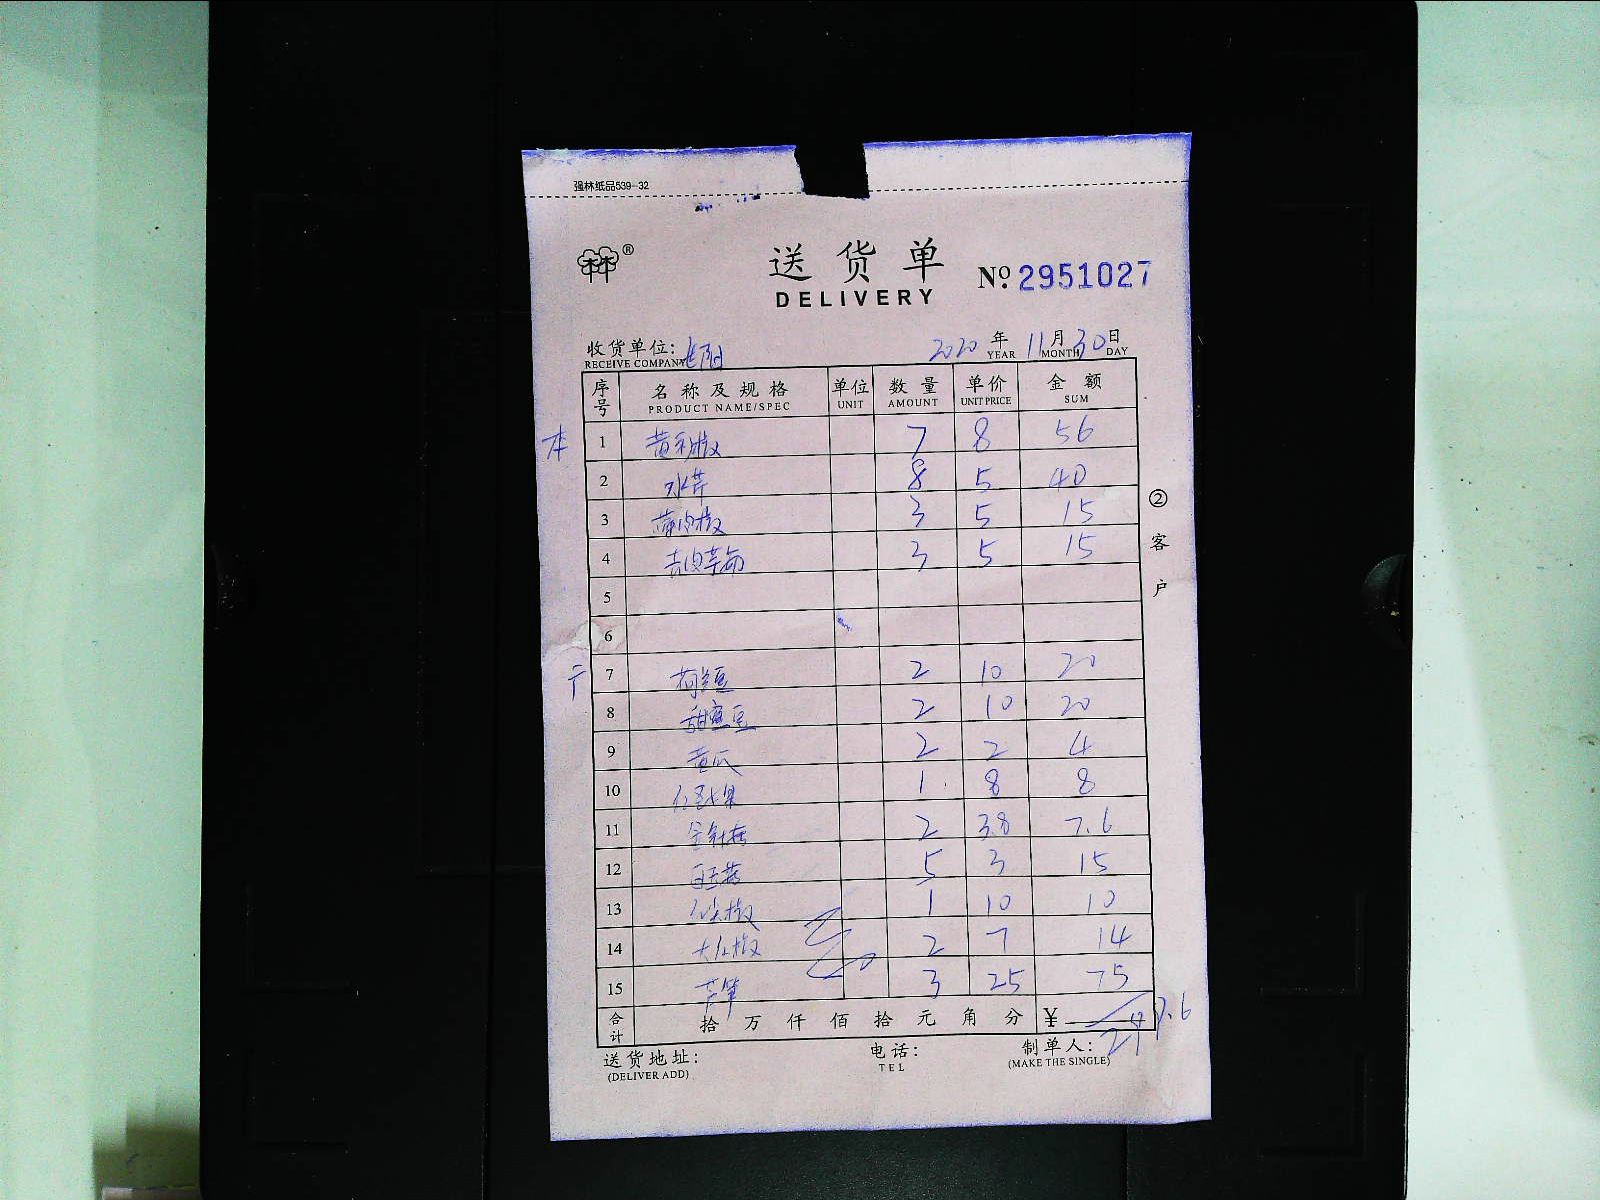 强林纸品539-32
林林®
送货单
DELIVERY
No. 2951027
收货单位:
RECEIVE COMPANY
2020 年 11 月 30 日
YEAR MONTH DAY
序号 名称及规格 单位 数量 单价 金额
PRODUCT NAME/SPEC UNIT AMOUNT UNIT PRICE SUM
本 1 黄彩椒 7 8 56
2 水芹 8 5 40
3 薄肉椒 3 5 15
4 去皮莘苟 3 5 15
5
6
于 7 荷兰豆 2 10 20
8 甜蜜豆 2 10 20
9 黄瓜 2 2 4
10 1 8 8
11 金针菇 2 3.8 7.6
12 白玉菇 5 3 15
13 红尖椒 1 10 10
14 大红椒 2 7 14
15 芦笋 3 25 75
合计 拾万仟佰拾元角分 ¥
送货地址: 电话: 制单人:
(DELIVER ADD) TEL (MAKE THE SINGLE)
②客户